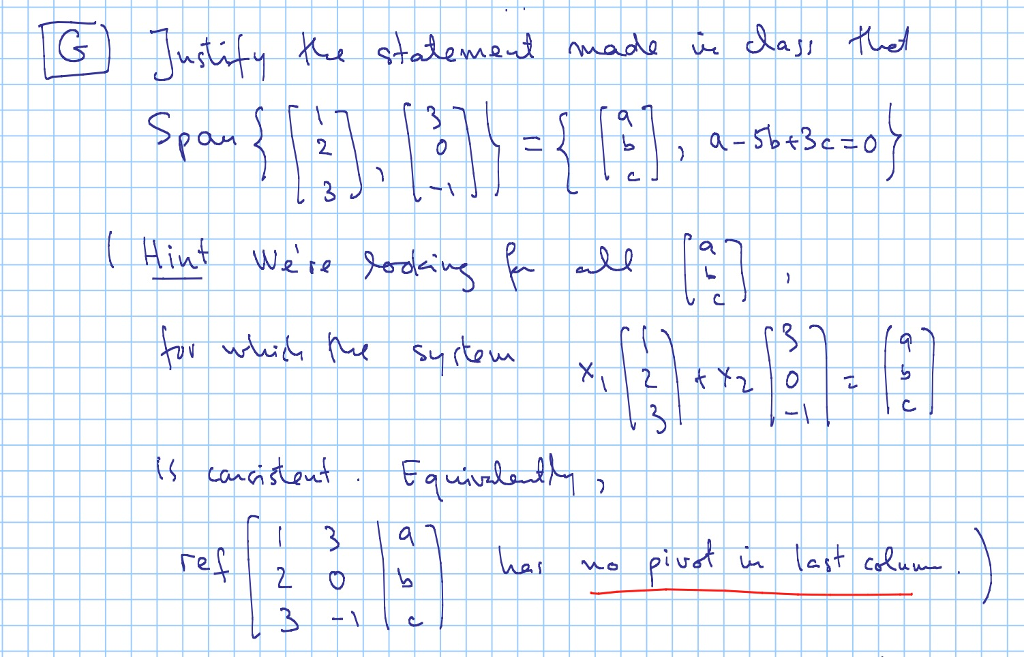 G Justify the statement made in class that
Span { [1 2 3], [3 0 -1] } = { [a b c], a-5b+3c=0 }
( Hint We're looking for all [a b c],
for which the system x1 [1 2 3] + x2 [3 0 -1] = [a b c]
is consistent. Equivalently,
ref [1 3 | a
2 0 | b
3 -1 | c] has no pivot in last column. )